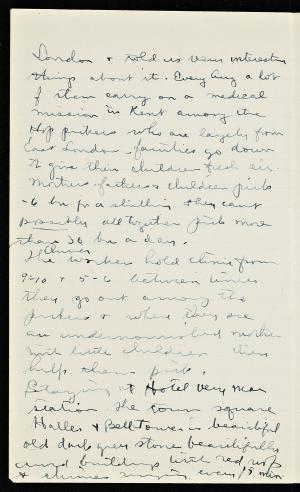 London & told us very interesting
things about it. Every Aug a lot
of them carry on a medical
mission in Kent among the
Hop pickers who are largely from
East London - families go down
to give their children fresh air.
Mothers - fathers & children pick
- 6 bu for a shilling & they can't
possibly all together pick more
than 30 bu a day.
The workers hold clinic from
9-10 & 5-6 between times
they go out among the
pickers & where they see
an undernourished mother
with little children they
help them pick.
Staying at Hotel very near
station. The town square
Halles & Belltower is beautiful
old dark grey stone beautifully
carved buildings with red roofs
& chimes ringing every 15 min